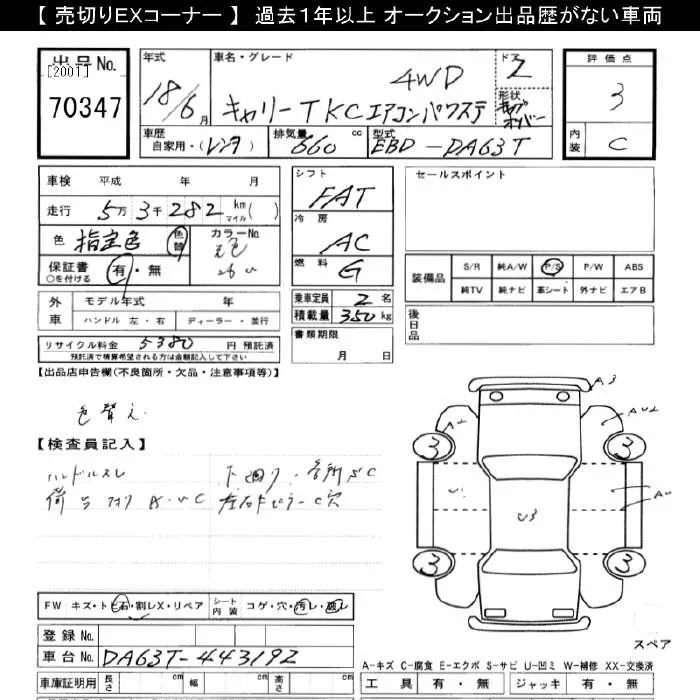 【 売切りEXコーナー 】 過去1年以上 オークション出品歴がない車両
出品No.
[2001]
70347
年式
18/6月
車名・グレード
4WD
キャリー TKC エアコン パワステ
ドア
2
形状
評価点
3
内装
C
車歴
自家用・(レンタ)
排気量
660 cc
型式
EBD-DA63T
車検 平成 年 月
走行 5万 3千 282 km マイル ( )
色 指定色 色替
カラーNo.
保証書 ○を付ける 有・無
外車
モデル年式 年
ハンドル 左・右
ディーラー・並行
リサイクル料金 5380 円 預託済
預託済で精算希望される方は金額記入して下さい
シフト
FAT
冷房
AC
燃料
G
乗車定員 2 名
積載量 350 kg
書類期限
月 日
セールスポイント
装備品
S/R 純A/W P/S P/W ABS
純TV 純ナビ 革シート 外ナビ エアB
後日品
【出品店申告欄(不良箇所・欠品・注意事項等)】
色替え
【検査員記入】
ハンドルスレ
下廻り
A3
A2
3 3
U3
3 3
FW キズ・トビ石・割レX・リペア
シート内装 コゲ・穴・汚レ・破レ
登録No.
車台No. DA63T-443192
車庫証明用 長さ cm 幅 cm 高さ cm
スペア
A-キズ C-腐食 E-エクボ S-サビ U-凹ミ W-補修 XX-交換済
工具 有・無 ジャッキ 有・無